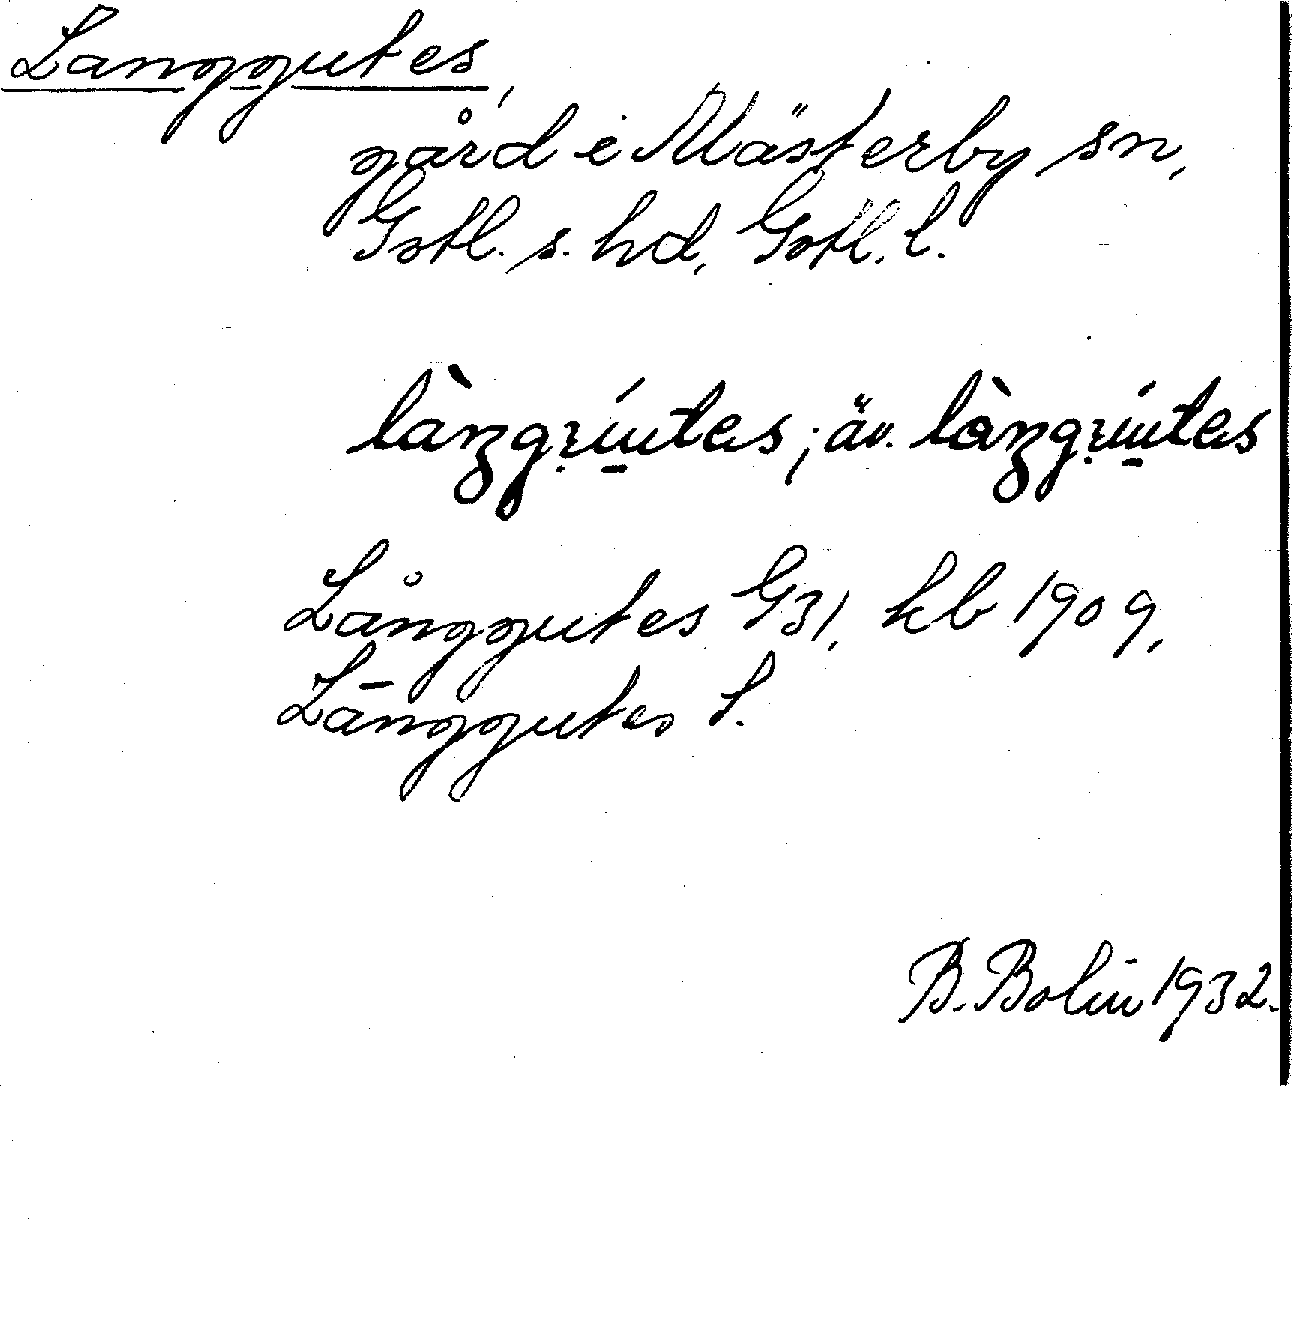 Langgutes,
gård i Mästerby sn,
Gotl. s. hd, Gotl. l.
; äv.
Långgutes G31, kb 1909,
Långgutes S.
B. Bolin 1932.